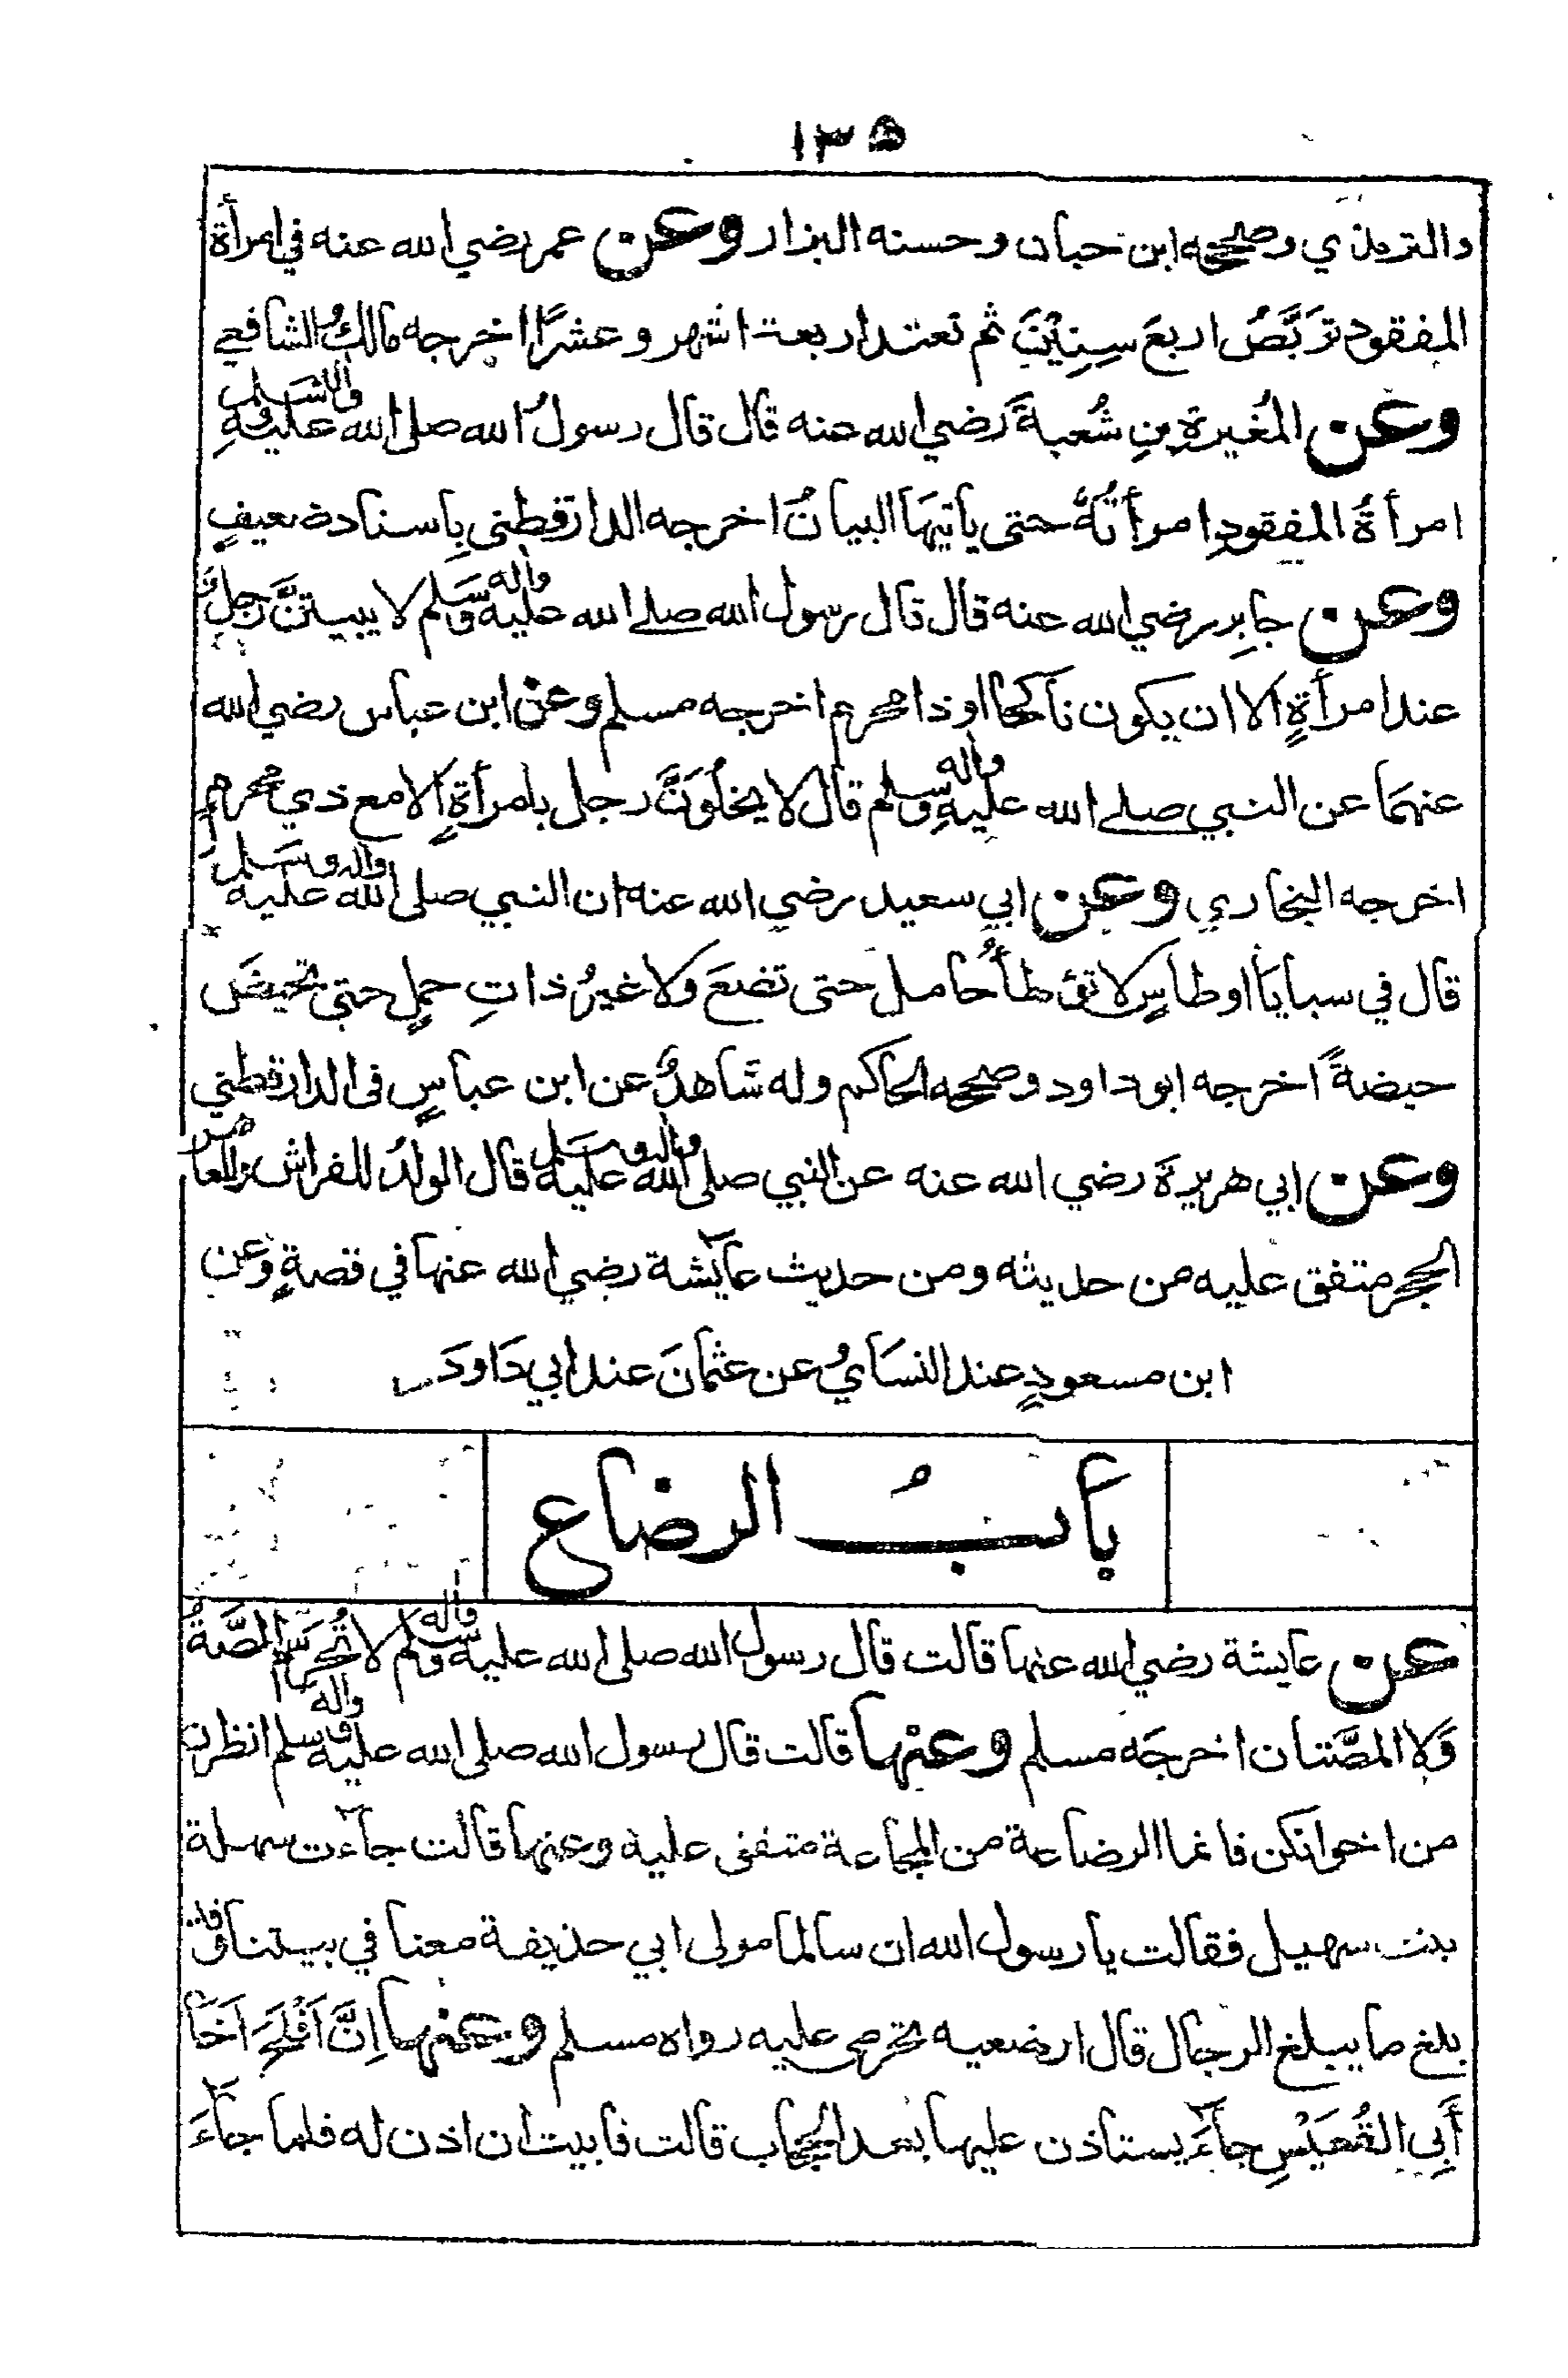 ١٣٥
والترمذي وصححه ابن حبان وحسنه البزار وعن عمر رضي الله عنه في امرأة
المفقود تَرَبَّصُ اربعَ سِنِيْنَ ثم تعتد اربعة اشهر وعشرًا اخرجه مالكٌ والشافعي
وعن المُغيرةِ بنِ شُعبةَ رضي الله عنه قال قال رسولُ الله صلى الله عليهِ واله وسلم
امرأةُ المفقودِ امرأتُهُ حتى ياتيَهَا البيانُ اخرجه الدارقطنى بِاسناد ضعيفٍ
وعن جابِر رضي الله عنه قال قال رسول الله صلے الله عليه واله وسَلم لا يبيتنَّ رجلٌ
عند امرأةٍ الا ان يكون ناكحًا او ذا محرم اخرجه مسلم وعن ابن عباس رضي الله
عنهمَا عن النبي صلے الله عليهِ واله وسلم قال لا يخلُوَنَّ رجل بامرأةٍ الا مع ذي محرمٍ
اخرجه البخاري وعن ابي سعيد رضي الله عنه ان النبي صلى الله عليه واله وسَلم
قال في سبايَا اوطاسٍ لا تؤطأُ حامل حتى تضعَ ولا غيرُ ذاتِ حملٍ حتى تحيضَ
حيضةً اخرجه ابو داود وصححه الحاكم وله شاهدٌ عن ابن عباسٍ فى الدارقطني
وعن ابي هريرةَ رضي الله عنه عن النبي صلى الله عليه واله وسلم قال الولدُ للفراش وللعاهر
الحجر متفق عليه من حديثه ومن حديث عايشة رضي الله عنها في قصةٍ وعن
ابن مسعودٍ عند النسَايُ عن عثمانَ عند ابي دَاودَ
بابُ الرضاع
عن عايشة رضي الله عنها قالت قال رسول الله صلى الله عليه واله وسلم لا تُحرِّمُ المصَّةُ
وَلا المصَّتان اخرجَه مسلم وعنْها قالت قال رسول الله صلى الله عليه واله وسلم انظرن
من اخوانكن فانما الرضاعة من المجاعة متفق عليه وعنها قالت جآءت سهلة
بنت سهيل فقالت يا رسول الله ان سالما مولى ابي حذيفة معنا في بيتنا وقد
بلغ ما يبلغ الرجال قال ارضعيه تحرمى عليه رواه مسلم وعنها اِنَّ اَفْلَحَ اَخَا
أَبِى القُعَيْسِ جآءَ يستاذن عليها بعد الحجاب قالت فابيت ان اذن له فلما جآءَ